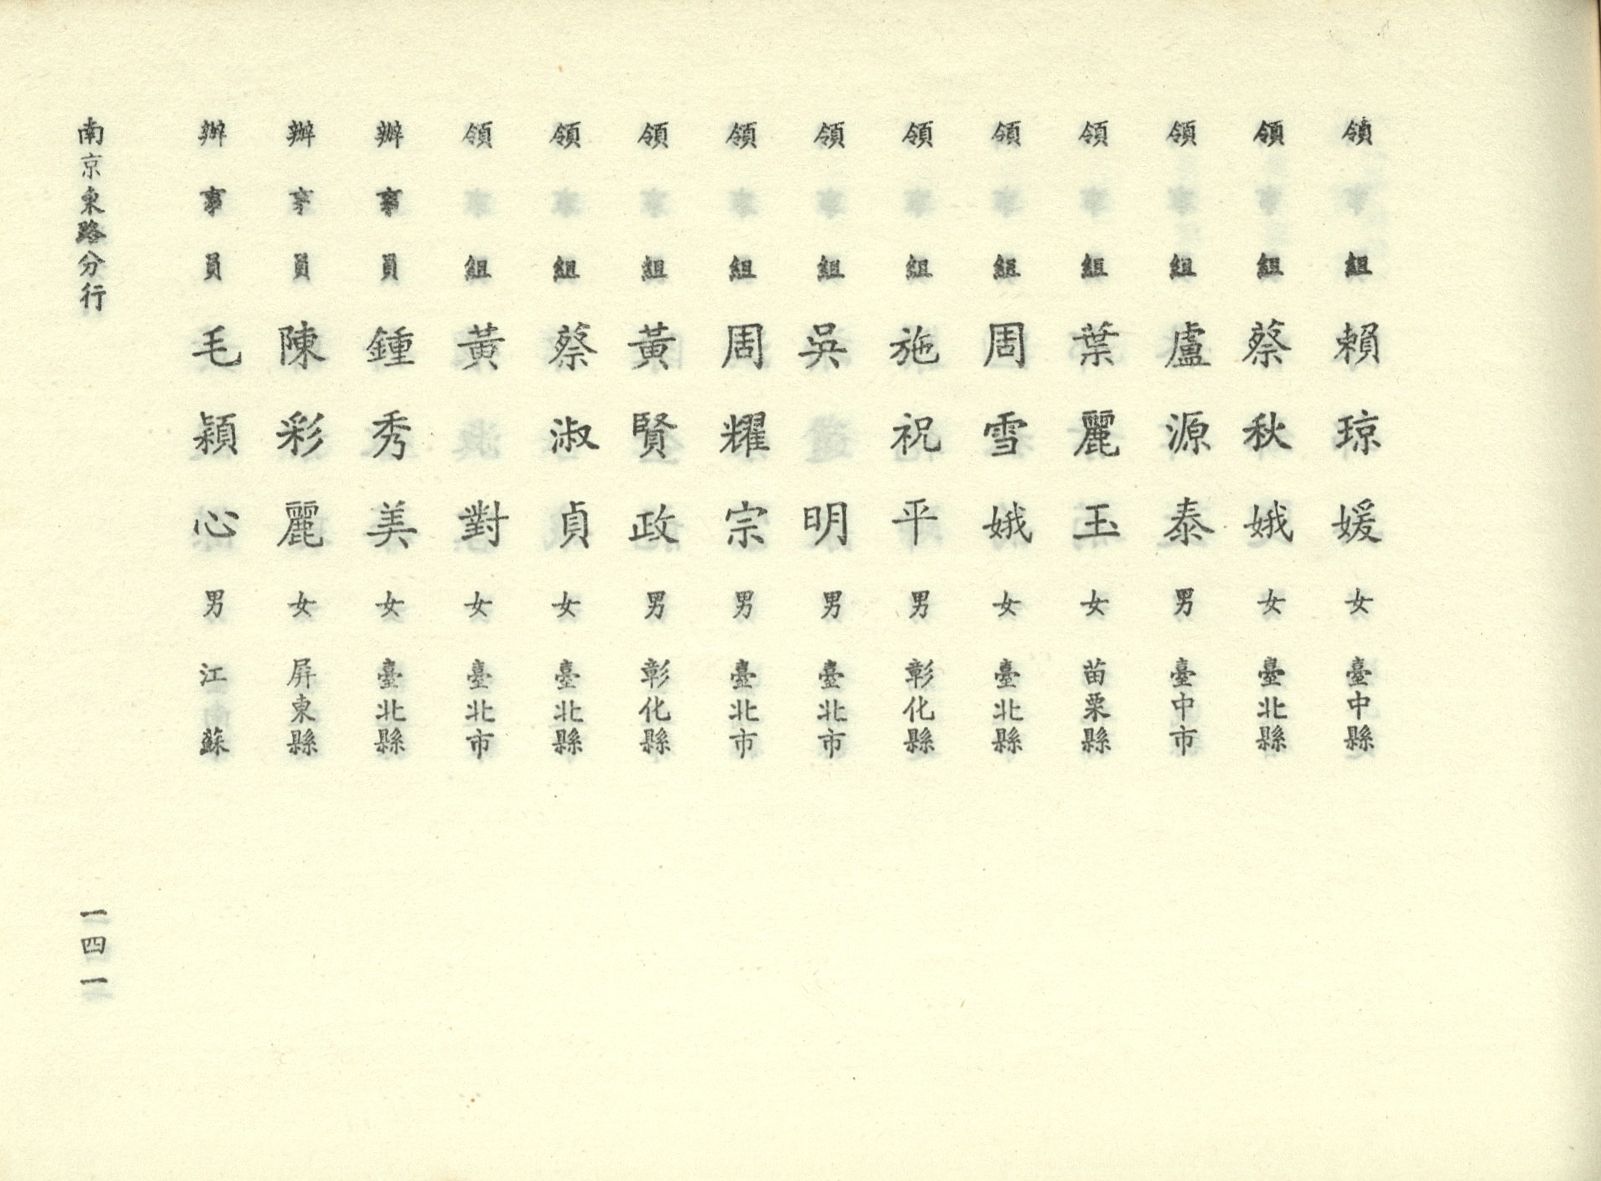 領組賴琼媛女臺中縣
領組蔡秋娥女臺北縣
領組盧源泰男臺中市
領組葉麗玉女苗栗縣
領組周雪娥女臺北縣
領組施祝平男彰化縣
領組吳明男臺北市
領組周耀宗男臺北市
領組黃賢政男彰化縣
領組蔡淑貞女臺北縣
領組黃對女臺北市
辦事員鍾秀美女臺北縣
辦事員陳彩麗女屏東縣
辦事員毛穎心男江蘇
南京東路分行
一四一